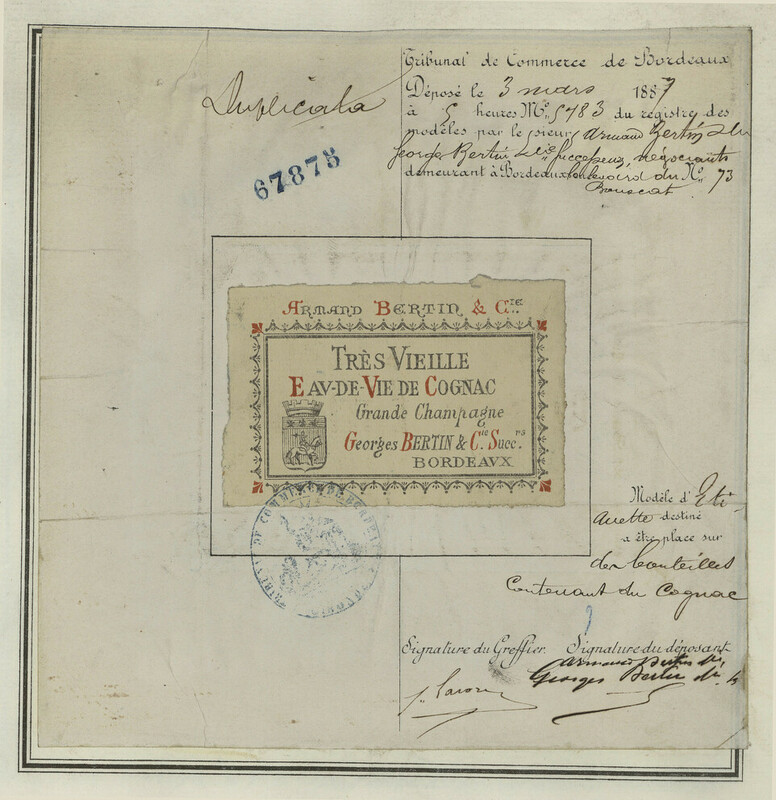 Duplicata
67875
Tribunal de Commerce de Bordeaux
Déposé le 3 mars 1887
à 5 heures No. 5783 du registre des
modèles par le sieur Armand Bertin &
Georges Bertin & Cie Successeurs, négociants
demeurant à Bordeaux boulevard du No. 73
Bouscat
ARMAND BERTIN & CIE.
TRÈS VIEILLE
EAV-DE-VIE DE COGNAC
Grande Champagne
Georges BERTIN & Cie. Succrs.
BORDEAVX
Modèle d'Eti-
quette destiné
a être place sur
des bouteilles
Contenant du Cognac
TRIBUNAL DE COMMERCE DE BORDEAUX
Signature du Greffier. Signature du déposant
Armand Bertin
Georges Bertin